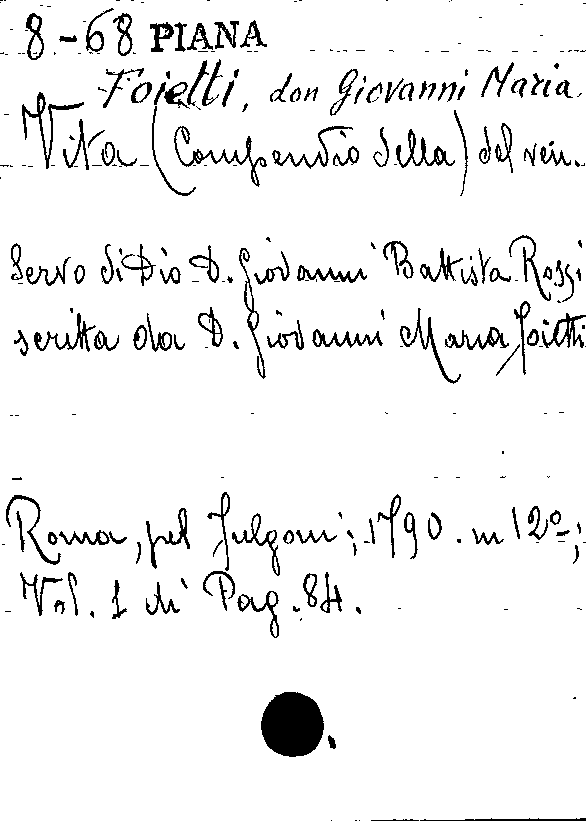 8-68 PIANA
Foietti, don Giovanni Maria.
Vita (Compendio della) del ven.
Servo di Dio D. Giovanni Battista Rossi
scritta da D. Giovanni Maria Foietti
Roma, pel Fulgoni; 1790. in 12º;
Vol. 1 di Pag. 84.